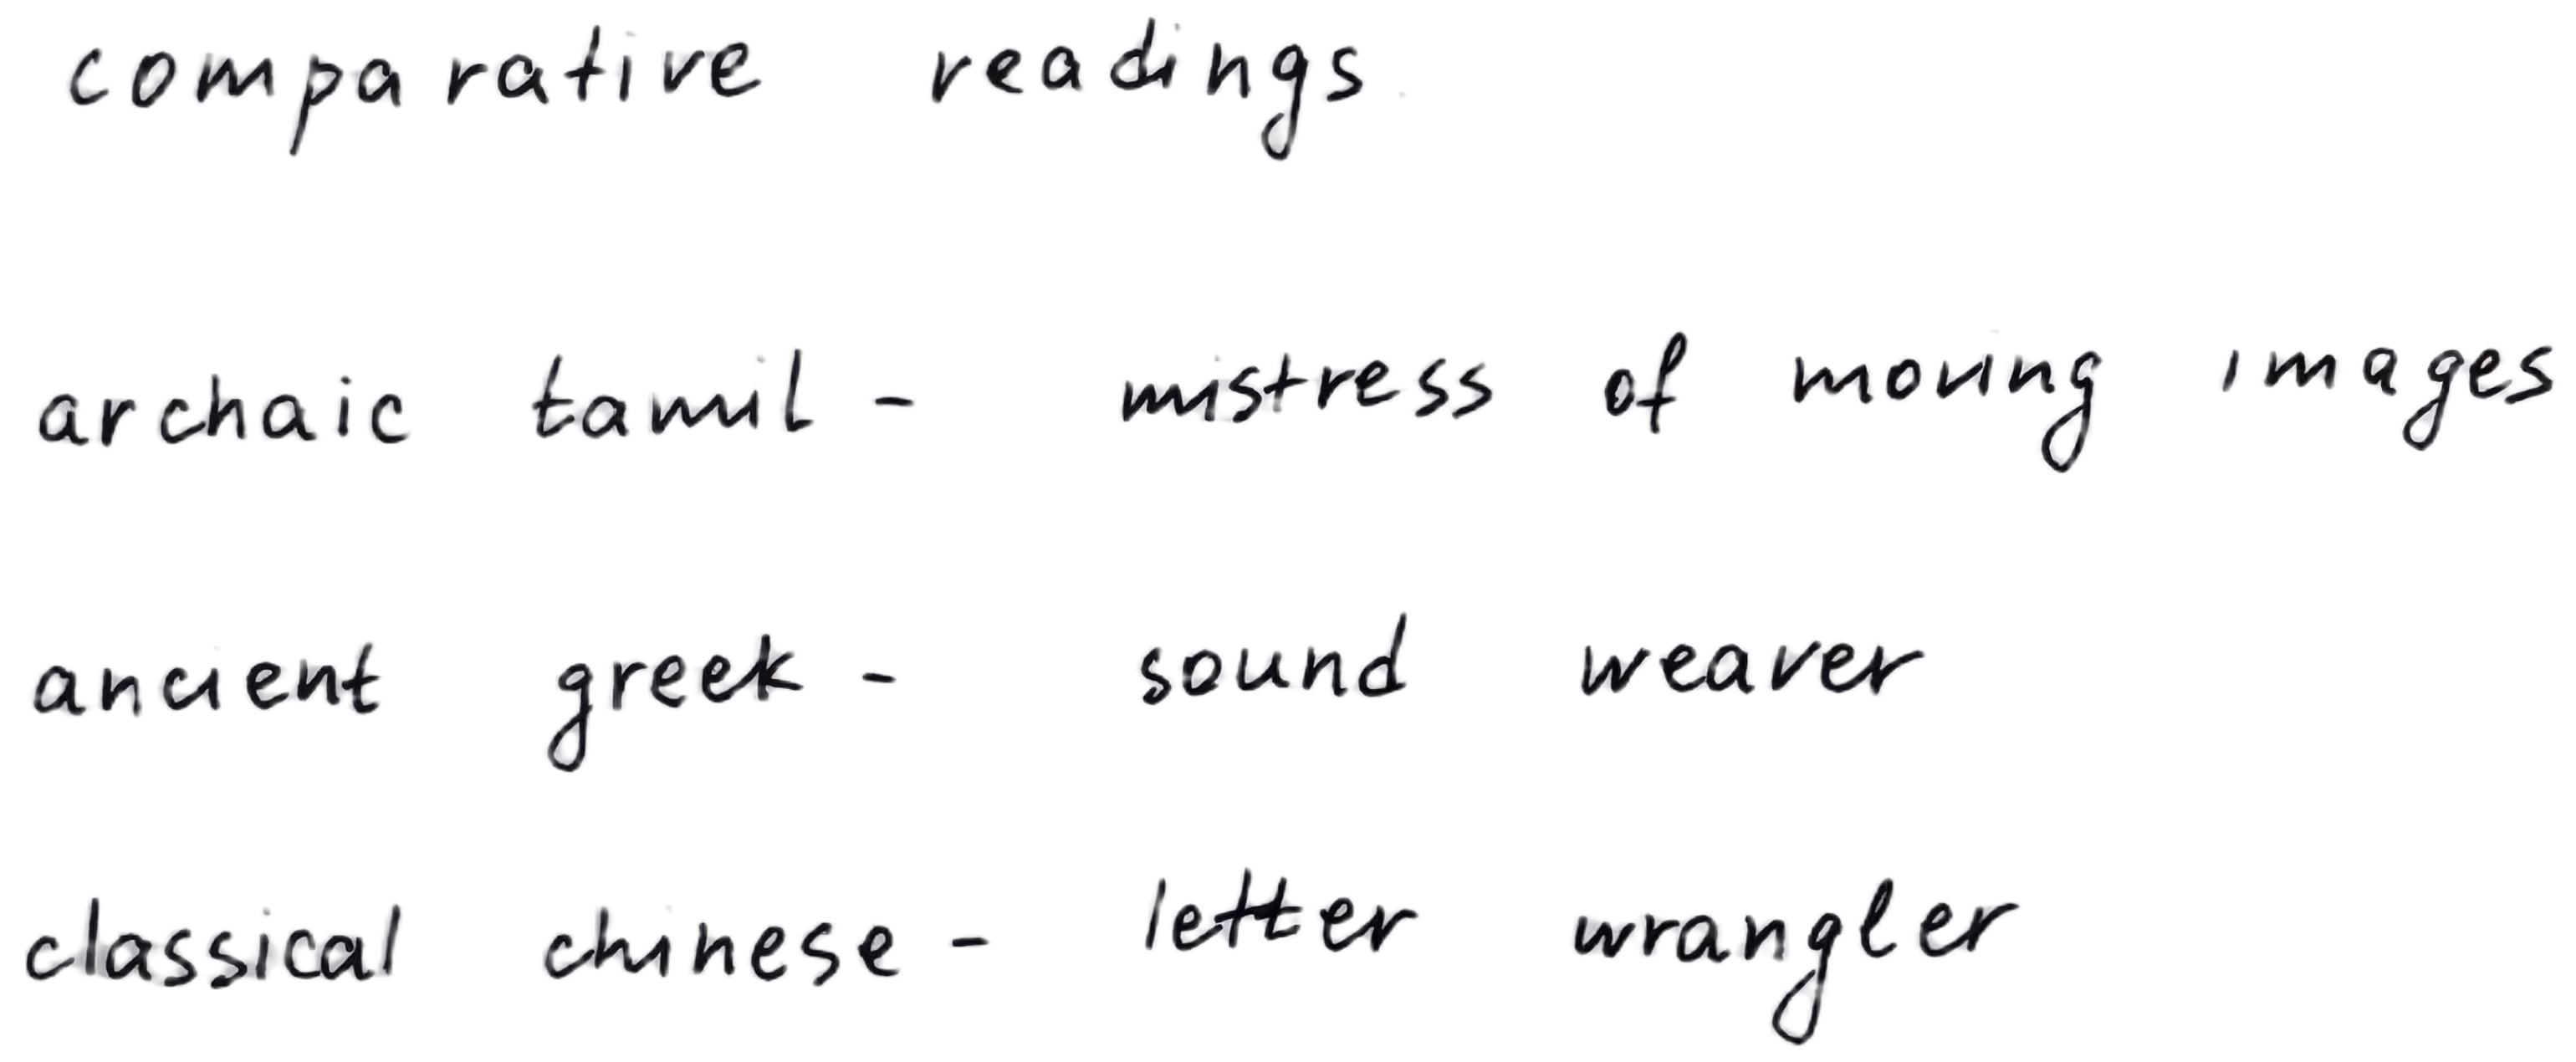 comparative readings
archaic tamil - mistress of moving images
ancient greek - sound weaver
classical chinese - letter wrangler